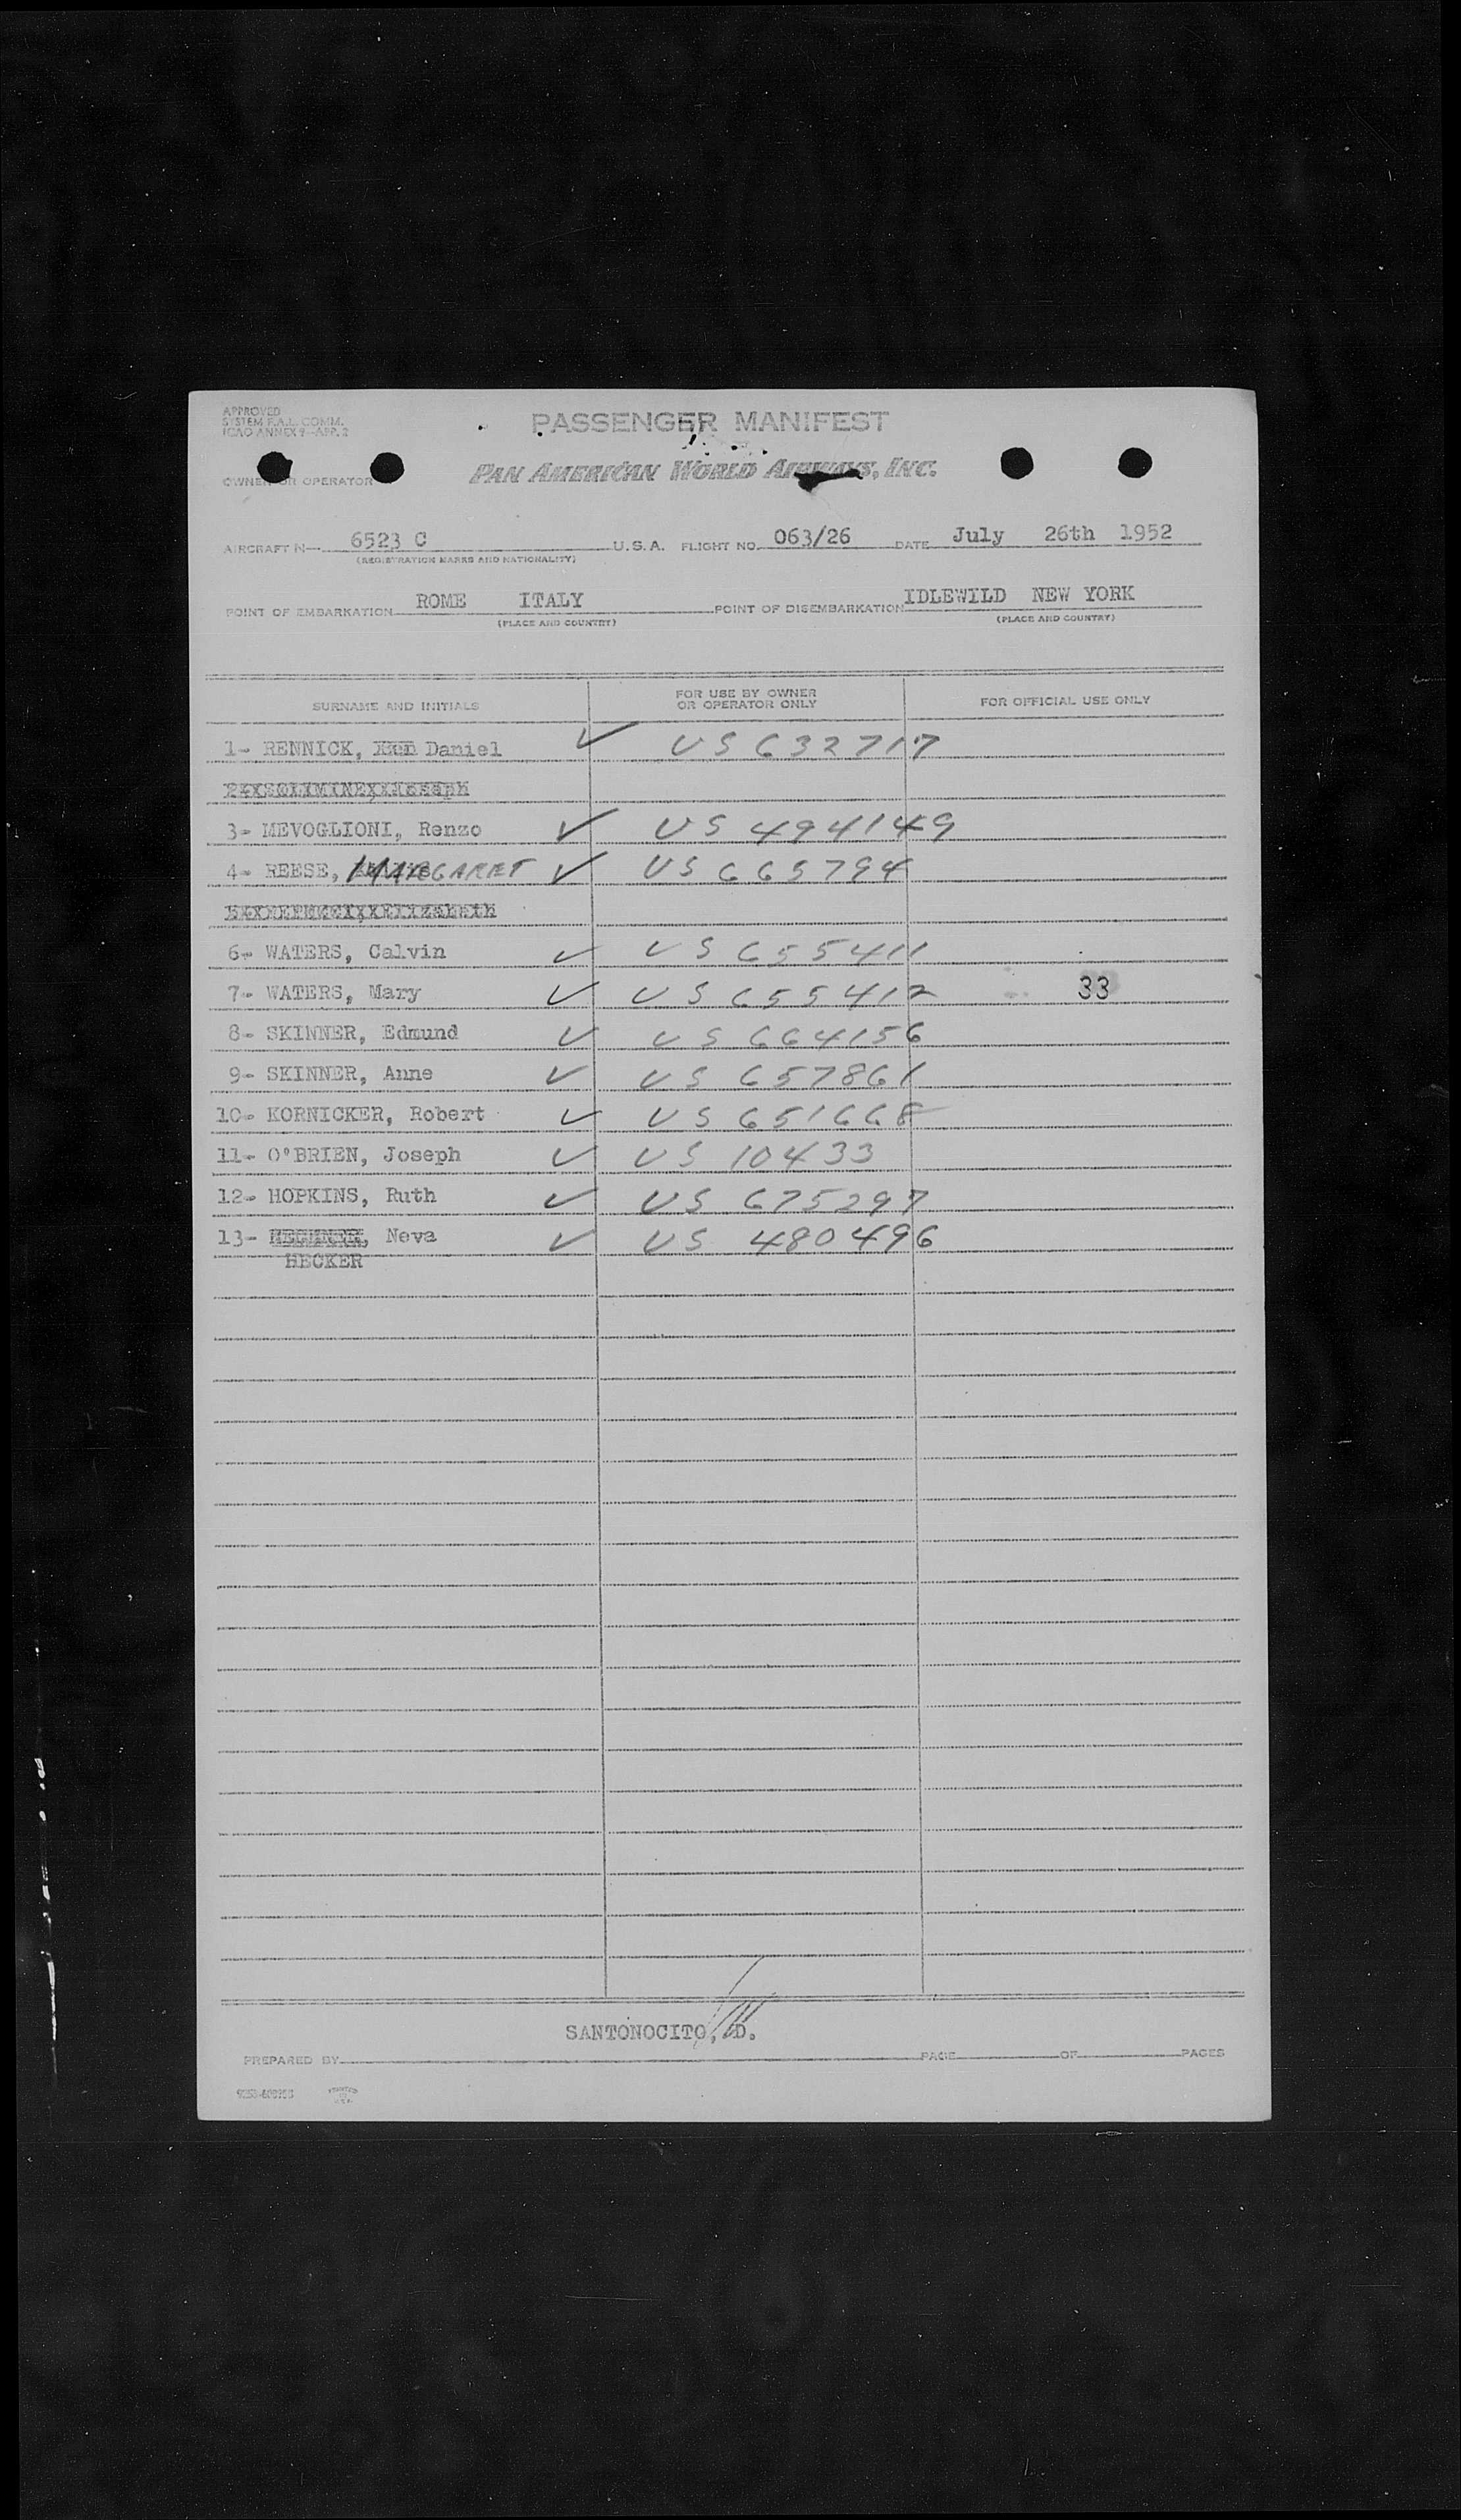 APPROVED
SYSTEM F.A.L. COMM.
ICAO ANNEX 9-APP. 2
PASSENGER MANIFEST
OWNER OR OPERATOR
PAN AMERICAN WORLD AIRWAYS, INC.
AIRCRAFT N— 6523 C U.S.A. FLIGHT NO. 063/26 DATE July 26th 1952
(REGISTRATION MARKS AND NATIONALITY)
POINT OF EMBARKATION ROME ITALY POINT OF DISEMBARKATION IDLEWILD NEW YORK
(PLACE AND COUNTRY) (PLACE AND COUNTRY)
SURNAME AND INITIALS FOR USE BY OWNER OR OPERATOR ONLY FOR OFFICIAL USE ONLY
1- RENNICK, Daniel ✓ US 632717
3- MEVOGLIONI, Renzo ✓ US 494149
4- REESE, MARGARET ✓ US 665794
6- WATERS, Calvin ✓ US 655411
7- WATERS, Mary ✓ US 655412 33
8- SKINNER, Edmund ✓ US 664156
9- SKINNER, Anne ✓ US 657861
10- KORNICKER, Robert ✓ US 651668
11- O'BRIEN, Joseph ✓ US 10433
12- HOPKINS, Ruth ✓ US 675297
13- Neva ✓ US 480496
HECKER
SANTONOCITO, D.
PREPARED BY PAGE OF PAGES